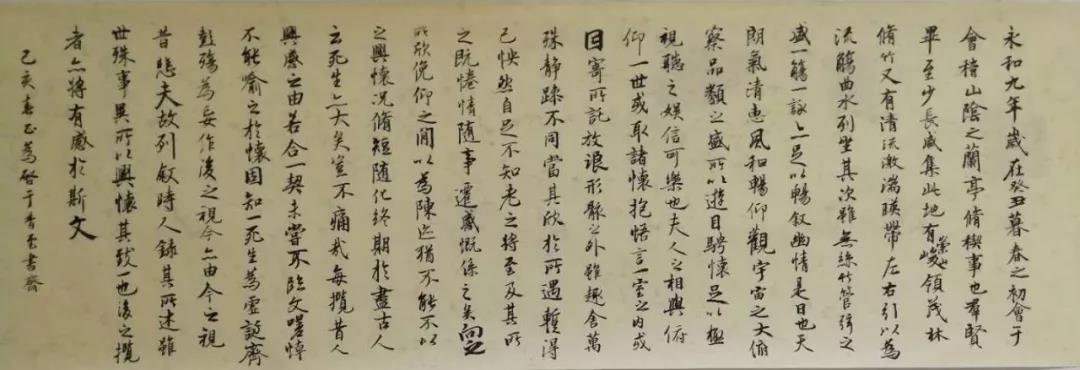 永和九年歲在癸丑暮春之初會于
會稽山陰之蘭亭脩稧事也羣賢
畢至少長咸集此地有崇山峻領茂林
脩竹又有清流激湍暎帶左右引以為
流觴曲水列坐其次雖無絲竹管弦之
盛一觴一詠亦足以暢叙幽情是日也天
朗氣清惠風和暢仰觀宇宙之大俯
察品類之盛所以遊目騁懷足以極
視聽之娛信可樂也夫人之相與俯
仰一世或取諸懷抱悟言一室之內或
因寄所託放浪形骸之外雖趣舍萬
殊静躁不同當其欣於所遇暫得
己怏然自足不知老之將至及其所
之既惓情随事遷感慨係之矣向之
所欣俛仰之閒以為陳迹猶不能不以
之興懷況脩短随化終期於盡古人
云死生亦大矣豈不痛哉每攬昔人
興感之由若合一契未嘗不臨文嗟悼
不能喻之於懷固知一死生為虛誕齊
彭殤為妄作後之視今亦由今之視
昔悲夫故列叙時人錄其所述雖
世殊事異所以興懷其致一也後之攬
者亦將有感於斯文
己亥春 于 書齋